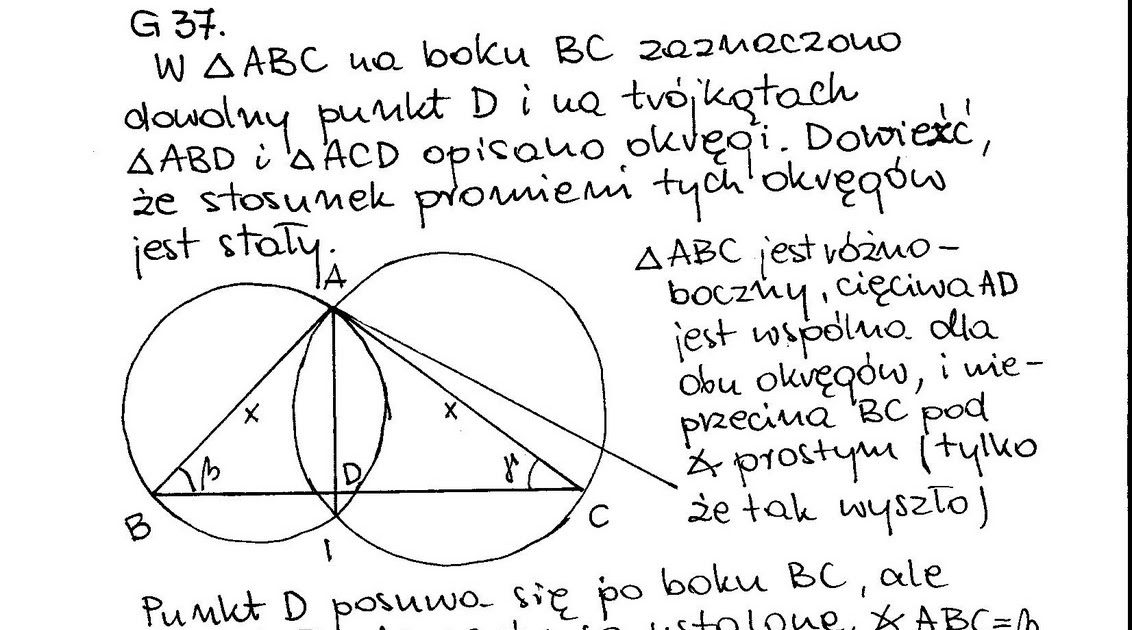 G 37.
W △ABC na boku BC zaznaczono
dowolny punkt D i na trójkątach
△ABD i △ACD opisano okręgi. Dowieść,
że stosunek promieni tych okręgów
jest stały.
A
△ABC jest różno-
boczny, cięciwa AD
jest wspólna dla
obu okręgów, i nie-
przecina BC pod
∢ prostym (tylko
że tak wyszło)
x x
β D γ
B C
1
Punkt D posuwa się po boku BC, ale
ustalone, ∢ABC=β